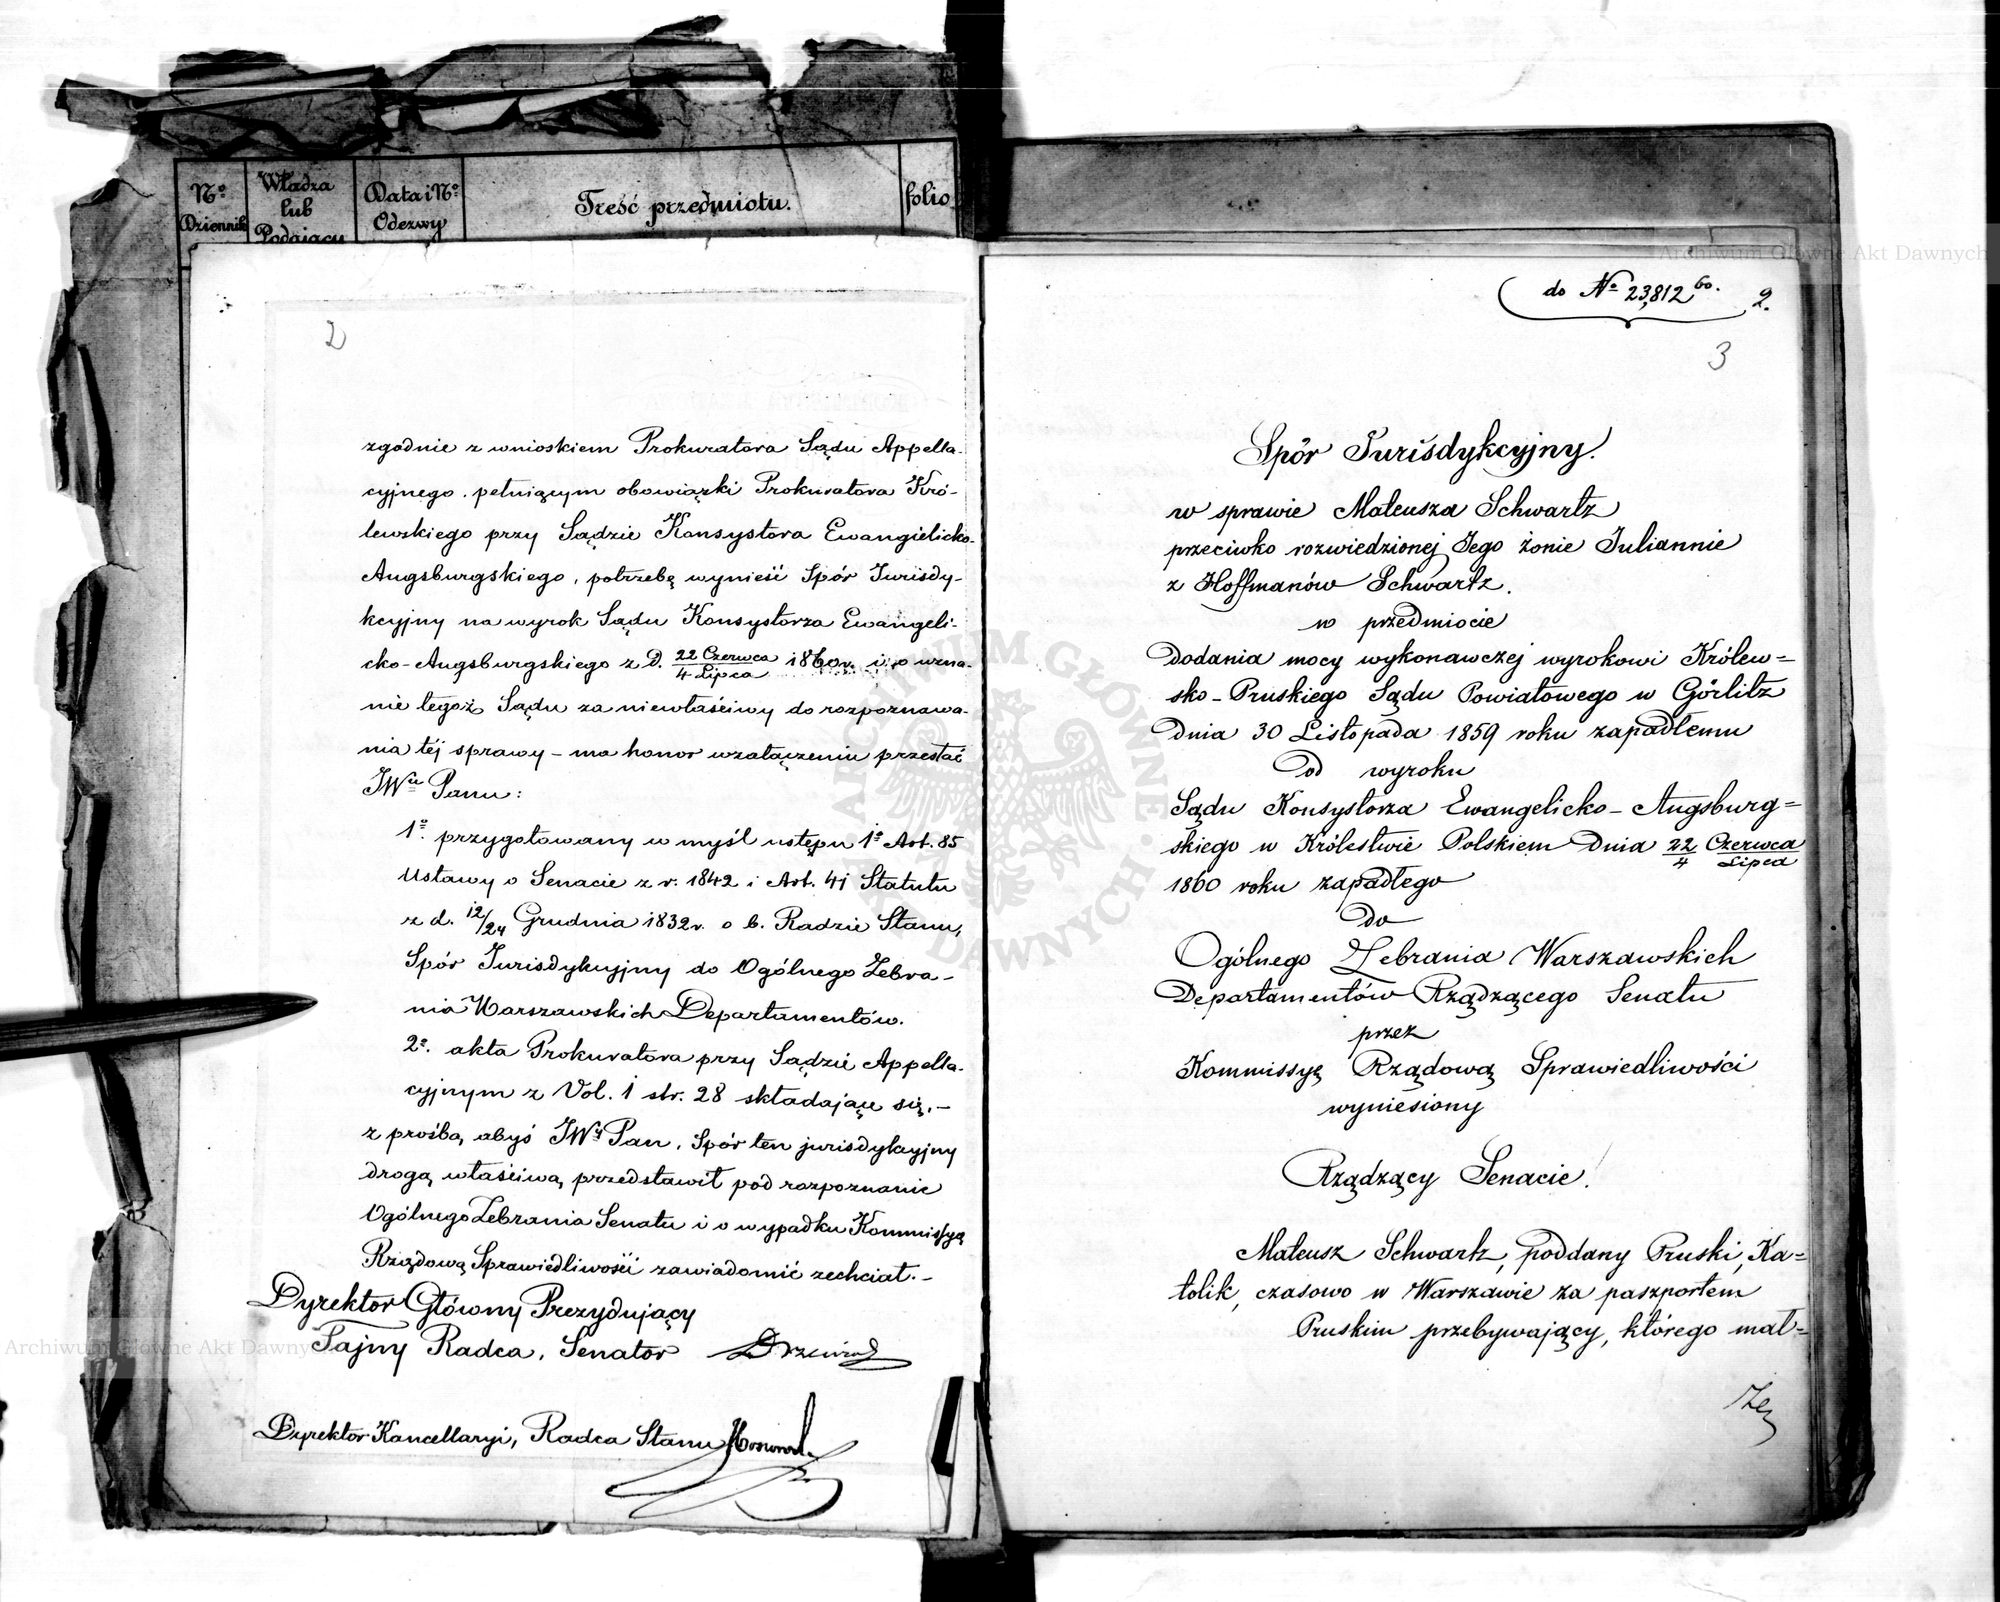 No Dziennik
Władza lub Podający
Data i No Odezwy
Treść przedmiotu.
folio
2
zgodnie z wnioskiem Prokuratora Sądu Appella-
cyjnego, pełniącym obowiązki Prokuratora Kró-
lewskiego przy Sądzie Konsystora Ewangielicko-
Augsburgskiego, potrzebę wynieść Spór Jurisdy-
kcyjny na wyrok Sądu Konsystorza Ewangeli-
cko-Augsburgskiego z d. 22 Czerwca / 4 Lipca 1860 r. i o uzna-
nie tegoż Sądu za niewłaściwy do rozpoznawa-
nia téj sprawy – ma honor w załączeniu przesłać
JWu Panu:
1o. przygotowany w myśl ustępu 1o Art. 85
Ustawy o Senacie z r. 1842 i Art. 41 Statutu
z d. 12/24 Grudnia 1832 r. o b. Radzie Stanu,
Spór Jurisdykcyjny do Ogólnego Zebra-
nia Warszawskich Departamentów.
2o. akta Prokuratora przy Sądzie Appella-
cyjnym z Vol. 1 str. 28 składające się. –
z prośbą abyś JWy Pan, Spór ten jurisdykcyjny
drogą właściwą przedstawił pod rozpoznanie
Ogólnego Zebrania Senatu i o wypadku Kommissyą
Rządową Sprawiedliwości zawiadomić zechciał. –
Dyrektor Główny Prezydujący
Tajny Radca, Senator
Dyrektor Kancellaryi, Radca Stanu
do No 23,812 60.
2.
3
Spór Jurisdykcyjny.
w sprawie Mateusza Schwartz
przeciwko rozwiedzionej Jego żonie Juliannie
z Hoffmanów Schwartz.
w przedmiocie
Dodania mocy wykonawczej wyrokowi Królew=
sko-Pruskiego Sądu Powiatowego w Görlitz
Dnia 30 Listopada 1859 roku zapadłemu
Od wyroku
Sądu Konsystorza Ewangelicko-Augsburg=
skiego w Królestwie Polskiem Dnia 22/4 Czerwca/Lipca
1860 roku zapadłego
Do
Ogólnego Zebrania Warszawskich
Departamentów Rządzącego Senatu
przez
Kommissyą Rządową Sprawiedliwości
wyniesiony
Rządzący Senacie!
Mateusz Schwartz, poddany Pruski, Ka=
tolik, czasowo w Warszawie za paszportem
Pruskim przebywający, którego mał=
żeń
ARCHIWUM GŁÓWNE AKT DAWNYCH
Archiwum Główne Akt Dawnych
Archiwum Główne Akt Dawnych